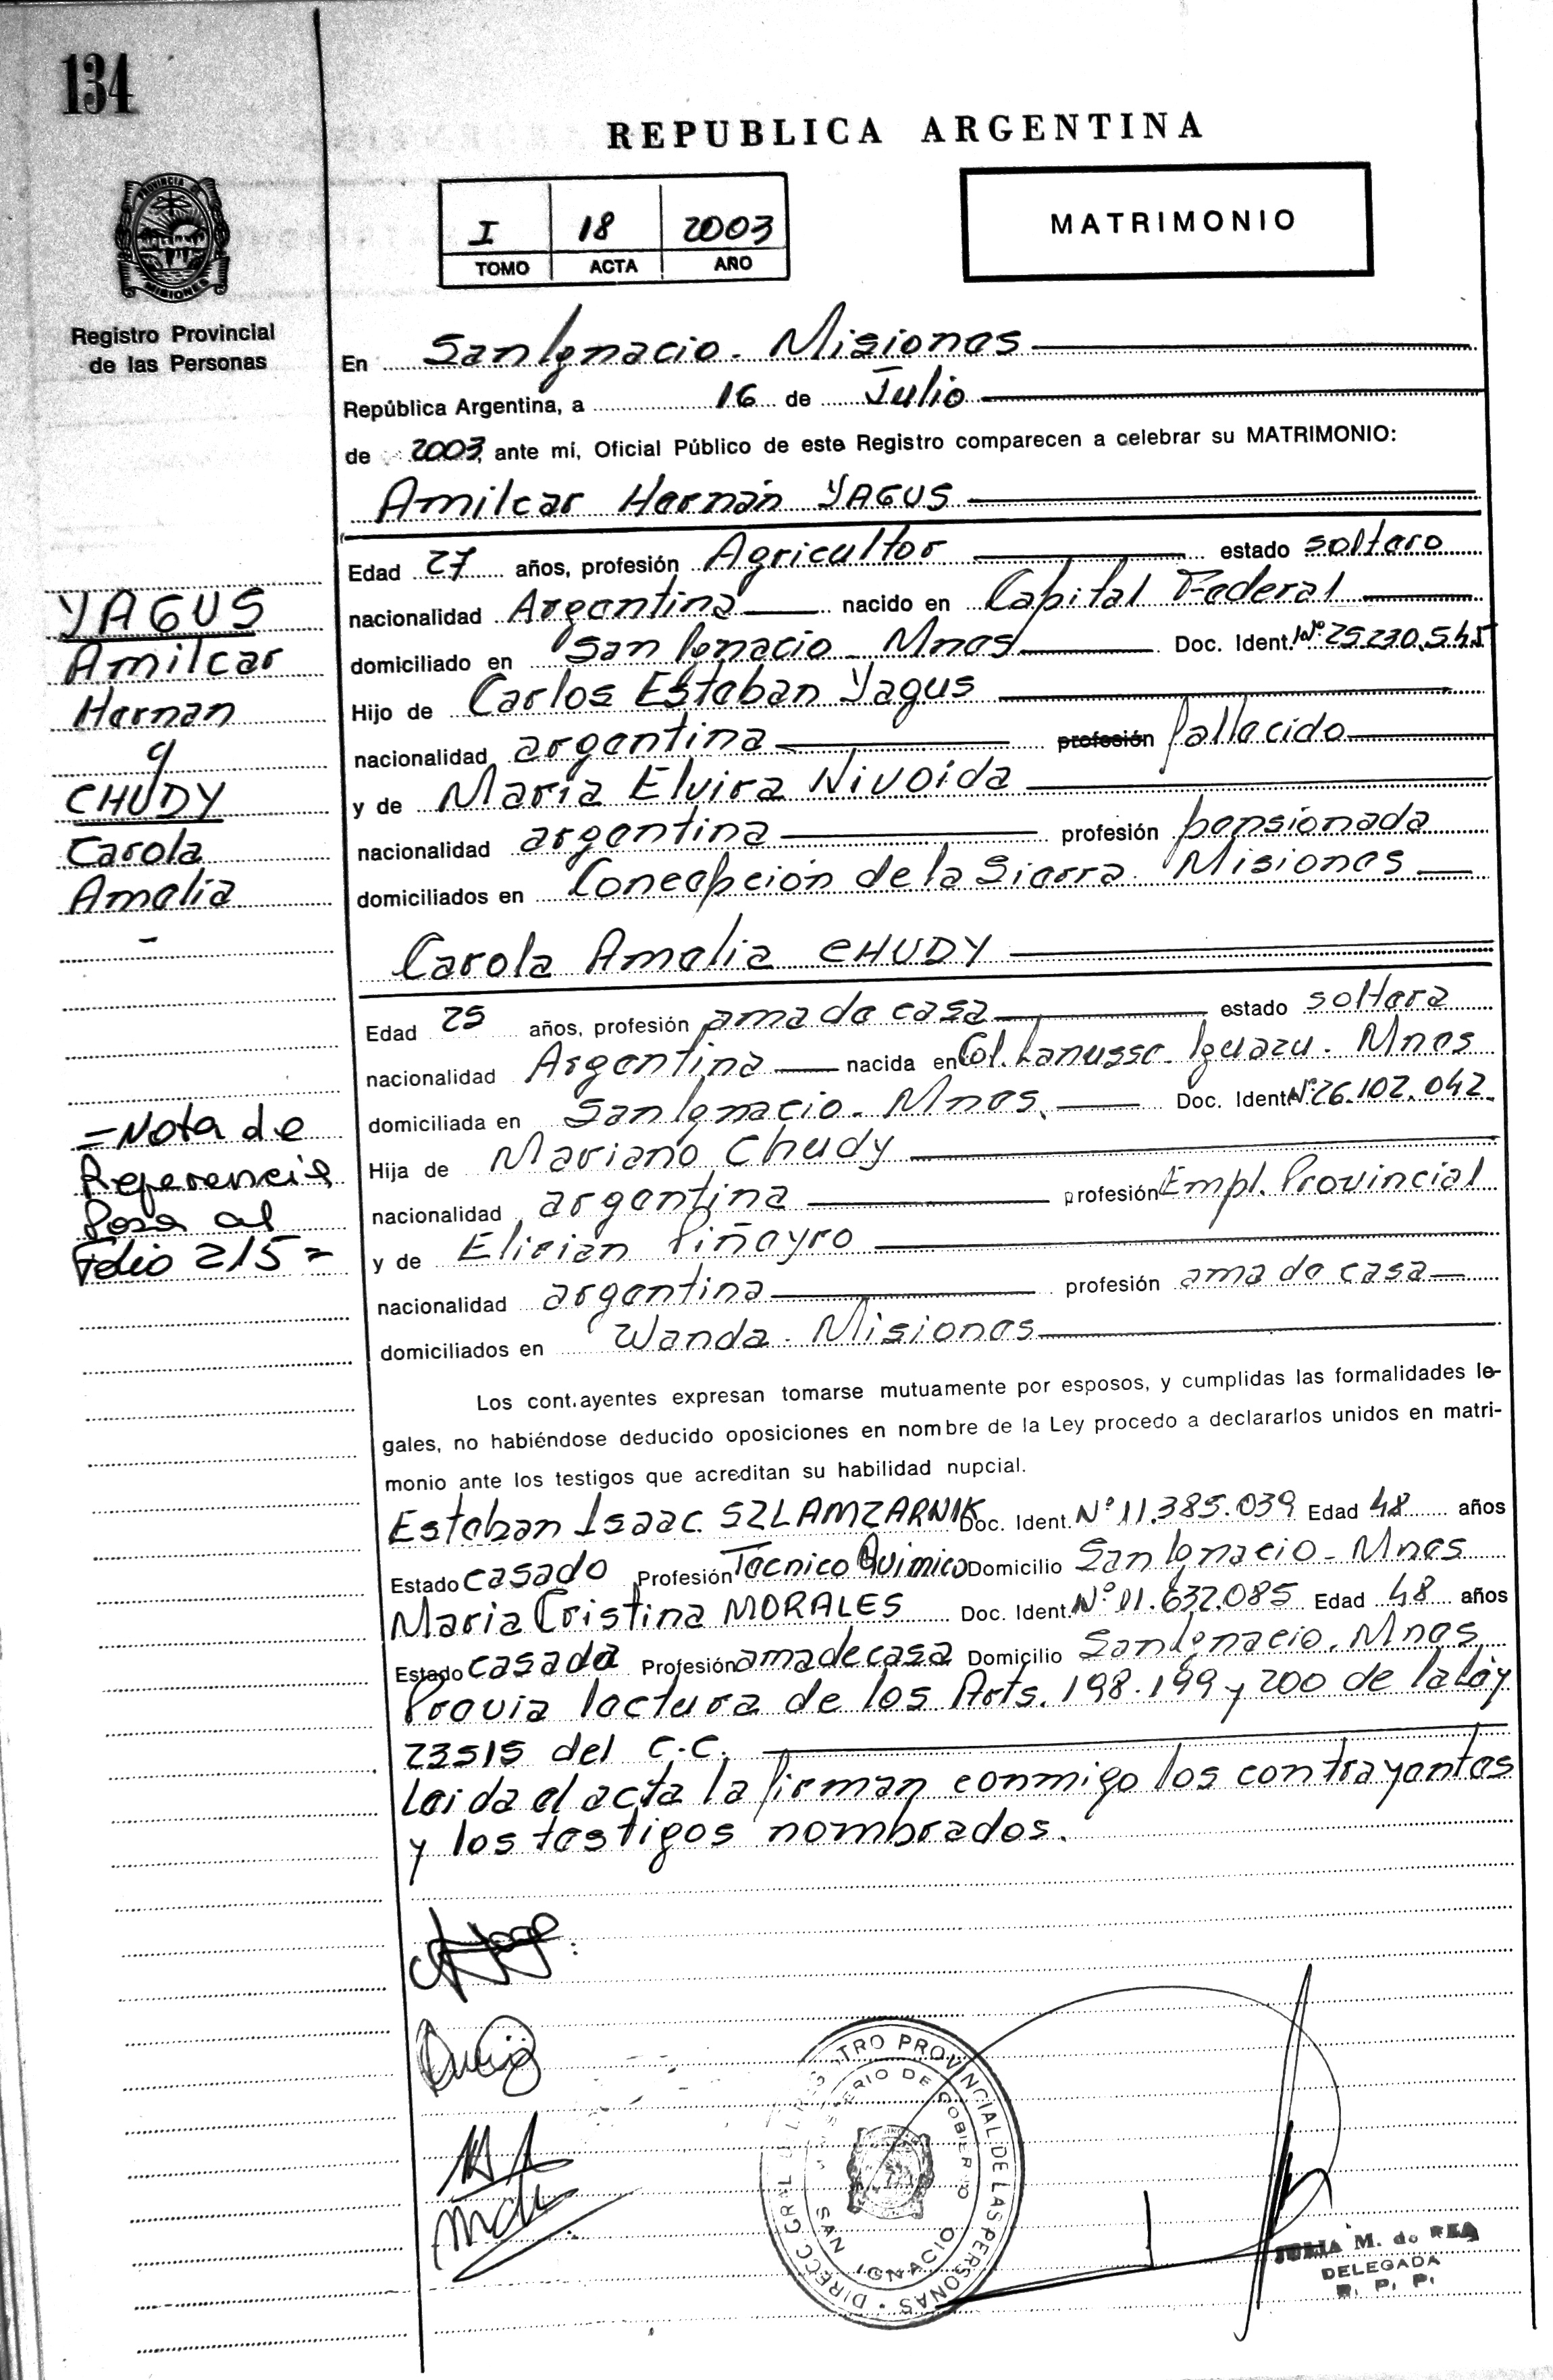 134
REPUBLICA ARGENTINA
PROVINCIA DE
MISIONES
Registro Provincial
de las Personas
I 18 2003
TOMO ACTA AÑO
MATRIMONIO
En San Ignacio - Misiones
República Argentina, a 16 de Julio
de 2003, ante mí, Oficial Público de este Registro comparecen a celebrar su MATRIMONIO:
Amilcar Hernán YAGUS
Edad 27 años, profesión Agricultor estado soltero
nacionalidad Argentina nacido en Capital Federal
domiciliado en San Ignacio - Mnes Doc. Ident. Nº 25.230.545
Hijo de Carlos Esteban Yagus
nacionalidad argentina profesión fallecido
y de María Elvira Nivoida
nacionalidad argentina profesión pensionada
domiciliados en Concepción de la Sierra - Misiones
Carola Amelia CHUDY
Edad 25 años, profesión ama de casa estado soltera
nacionalidad Argentina nacida en Col. Lanusse - Iguazu - Mnes
domiciliada en San Ignacio - Mnes. Doc. Ident Nº 26.102.042
Hija de Mariano Chudy
nacionalidad argentina profesión Empl. Provincial
y de Piñeyro
nacionalidad argentina profesión ama de casa
domiciliados en Wanda - Misiones
YAGUS
Amilcar
Hernan
y
CHUDY
Carola
Amelia
-
= Nota de
Referencia
Pasa al
Folio 215 =
Los cont.ayentes expresan tomarse mutuamente por esposos, y cumplidas las formalidades le-
gales, no habiéndose deducido oposiciones en nombre de la Ley procedo a declararlos unidos en matri-
monio ante los testigos que acreditan su habilidad nupcial.
Esteban Isaac SZLAMZARNIK Doc. Ident. Nº 11.385.039 Edad 48 años
Estado casado Profesión Técnico Químico Domicilio San Ignacio - Mnes
Maria Cristina MORALES Doc. Ident. Nº 11.632.085 Edad 48 años
Estado casada Profesión ama de casa Domicilio San Ignacio. Mnes
Previa lectura de los Arts. 198.199 y 200 de la Ley
23515 del C.C.
Leida el acta la firman conmigo los contrayentes
y los testigos nombrados.
DIRECC GRAL DEL REGISTRO PROVINCIAL DE LAS PERSONAS
MINISTERIO DE GOBIERNO
SAN IGNACIO
JULIA M. de REA
DELEGADA
R. P. P.